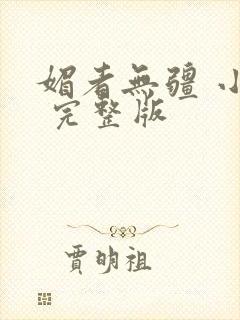 媚者無疆 小
完整版
賈明祖